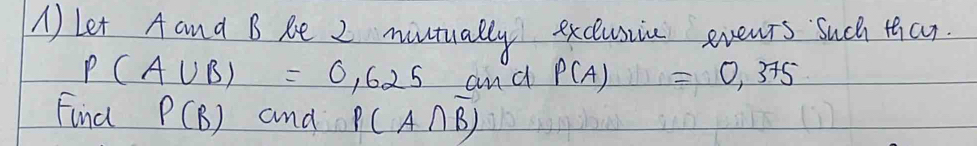 1) Let A and B be 2 mutually exclusive events such that.
P(A∪B) = 0,625 and P(A) = 0,375.
Find P(B) and P(A∩B̅)